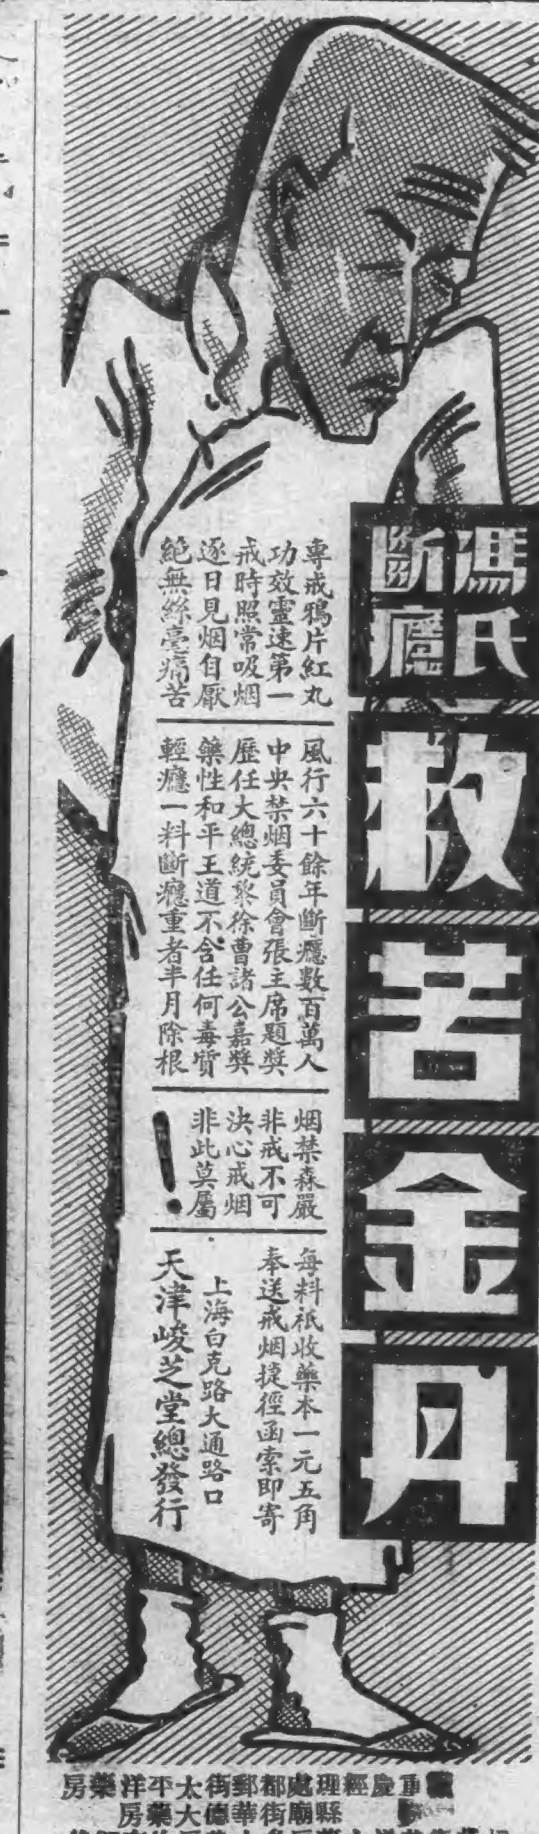 馮氏
斷癮
救苦金丹
專戒鴉片紅丸
功效靈速第一
戒時照常吸烟
逐日見烟自厭
絕無絲毫痛苦
風行六十餘年斷癮數百萬人
中央禁烟委員會張主席題獎
歷任大總統黎徐曹諸公嘉獎
藥性和平王道不含任何毒質
輕癮一料斷癮重者半月除根
烟禁森嚴
非戒不可
決心戒烟
非此莫屬
!
每料祇收藥本一元五角
奉送戒烟捷徑函索即寄
上海白克路大通路口
天津峻芝堂總發行